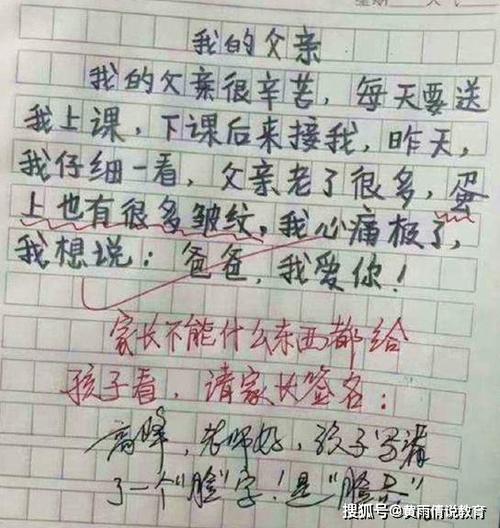 我的父亲
我的父亲很辛苦，每天要送
我上课，下课后来接我，昨天，
我仔细一看，父亲老了很多，蛋
上也有很多皱纹。我心痛极了，
我想说：爸爸，我爱你！
家长不能什么东西都给
孩子看，请家长签名：
老师好，孩子写错
了一个"脸"字！是"脸上"
搜狐号@黄雨倩说教育